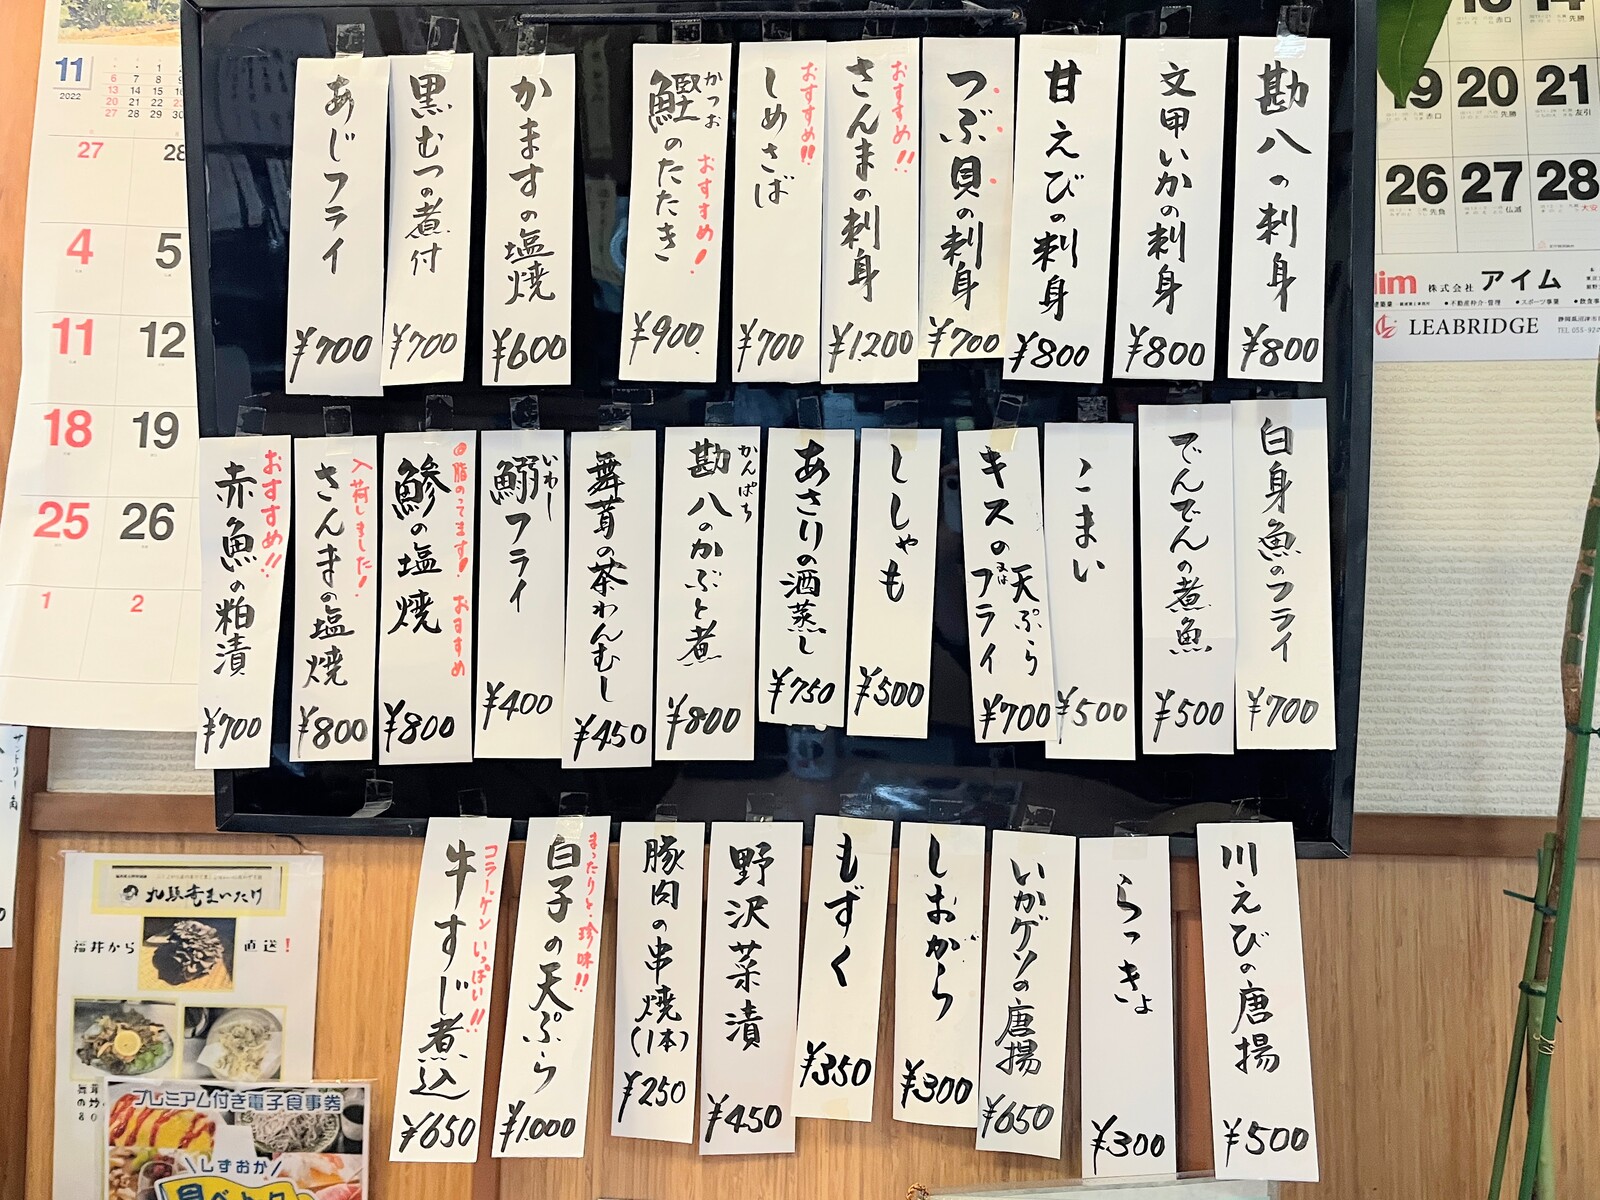 勘八の刺身 ¥800
文甲いかの刺身 ¥800
甘えびの刺身 ¥800
つぶ貝の刺身 ¥700
さんまの刺身 ¥1200
おすすめ!!
しめさば ¥700
おすすめ!!
鰹のたたき ¥900
かつお
おすすめ!
かますの塩焼 ¥600
黒むつの煮付 ¥700
あじフライ ¥700
白身魚のフライ ¥700
でんでんの煮魚 ¥500
こまい ¥500
キスの天ぷら
又は
フライ
¥700
ししゃも ¥500
あさりの酒蒸し ¥750
勘八のかぶと煮 ¥800
かんぱち
舞茸の茶わんむし ¥450
鰯フライ ¥400
いわし
鰺の塩焼 ¥800
脂のってます! おすすめ
さんまの塩焼 ¥800
入荷しました!
赤魚の粕漬 ¥700
おすすめ!!
川えびの唐揚 ¥500
らっきょ ¥300
いかゲソの唐揚 ¥650
しおから ¥300
もずく ¥350
野沢菜漬 ¥450
豚肉の串焼(1本) ¥250
白子の天ぷら ¥1000
まったりと、珍味!!
牛すじ煮込 ¥650
コラーゲンいっぱい!!
11
2022
27 28
4 5
11 12
18 19
25 26
1 2
19 20 21
26 27 28
株式会社 アイム
LEABRIDGE
サントリー角
九頭竜まいたけ
福井から 直送!
プレミアム付き電子食事券
しずおか